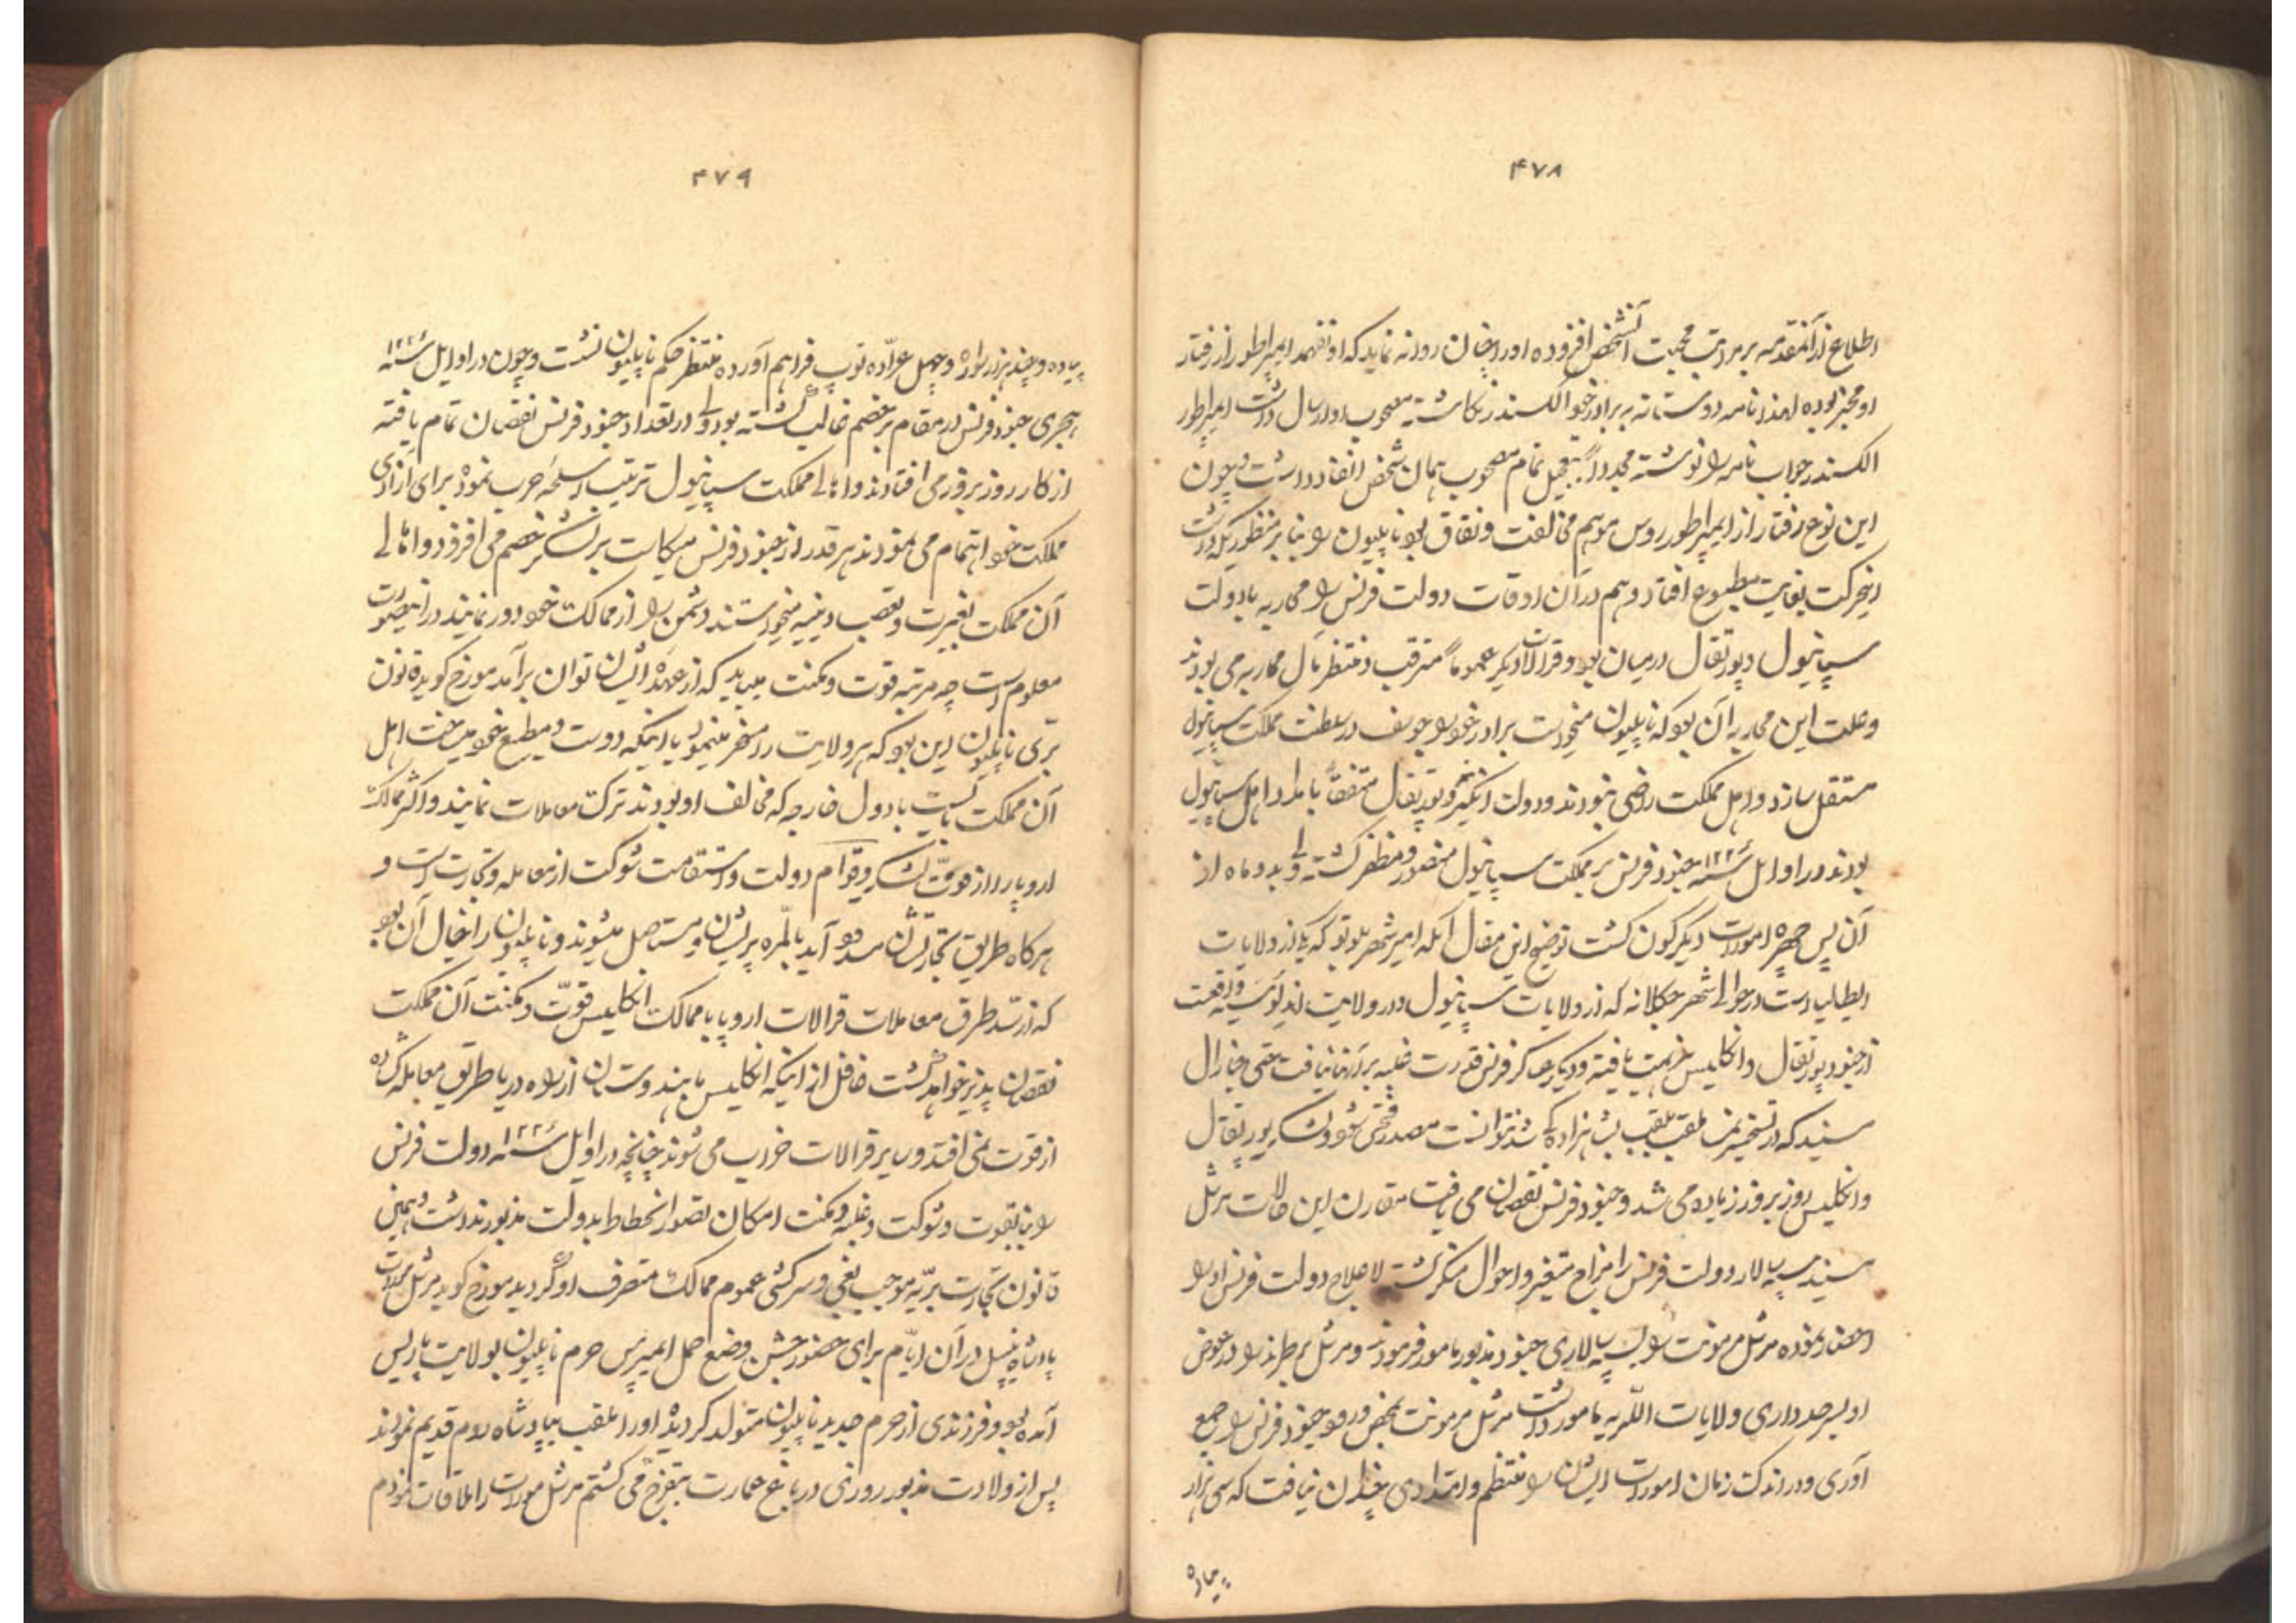 ۴۷۸
اطلاع از آنمقدمه بر مراتب محبت آنشخص افزوده اورا چنان روانه نماید که او نفهمد ایمپراطور از رفتار
او مخبر بوده لهذا نامه دوستانه به برادر خود الکسندر نکاشته مصحوب او ارسال داشت ایمپراطور
الکسندر جواب نامه را نوشته مجدداً بتعجیل تمام مصحوب همان شخص انفاد داشت و چون
این نوع رفتار از ایمپراطور روس موهم مخالفت و نفاق بود ناپلیون را بنا بر منظوریکه داشت
اینحرکت بغایت مطبوع افتاد و هم در آن اوقات دولت فرنس را محاربه با دولت
سپانیول و پورتقال درمیان بود و قرالات دیکر عموماً مترقب و منتظر مآل محاربه می بودند
و علت این محاربه آن بود که ناپلیون میخواست برادر خود جوسف را در سلطنت مملکت سپانیول
مستقل سازد و اهل مملکت راضی نبودند و دولت انکلیز و پورتقال متفقاً بامداد اهل سپانیول
بودند در اوایل سنه ۱۲۲۶ جنود فرنس بر مملکت سپانیول منصور و مظفر کشته ولی بدو ماه از
آن پس چهره امورات دیکرکون کشت توضیح این مقال آنکه امیر شهر بلوتو که یکی از ولایات
ایطالیا است در حوالی شهر جکلانه که از ولایات سپانیول و در ولایت اندلوسیه واقعست
از جنود پورتقال و انکلیس هزیمت یافته و دیکر عساکر فرنس قدرت غلبه بر آنها نیافت حتی جنارال
سیند که در تسخیر یمنه ملقب بلقب بشاهزاده کی شد نتوانست مصدر فتحی شود و لشکر پورتقال
و انکلیس روز بروز زیاده می شد و جنود فرنس نقصان می یافت مقارن این حالات مرشل
سیند سپه سالار دولت فرنس را مزاج متغیر و احوال منکر کشت لاعلاج دولت فرنس او را
احضار نموده مرشل مرمونت را بسپه سالاری جنود مذبور مامور فرمودند و مرشل برطرند را در عوض
او بسرحدداری ولایات اللریه مامور داشت مرشل مرمونت بمحض ورود جنود فرنس را جمع
آوری و در اندک زمان امورات ایشان را منتظم و امتدادی چندان نیافت که سی هزار
پیاده
۴۷۹
پیاده و چند هزار سواره و چهل عراده توپ فراهم آورده منتظر حکم ناپلیون نشست و چون در اوایل سنه ۱۲۲۶
هجری جنود فرنس در هر مقام بر خصم غالب کشته بود ولی در تعداد جنود فرنس نقصان تمام یافته
از کار روز بروز می افتادند و اهالی مملکت سپانیول ترتیب اسلحه حرب نموده برای آزادی
مملکت خود اهتمام می نمودند هر قدر از جنود فرنس میکاست بر لشکر خصم می افزود و اهالی
آن مملکت بغیرت و تعصب دینیه میخواستند دشمن را از ممالک خود دور نمایند در اینصورت
معلوم است چه مرتبه قوت و مکنت میباید که از عهده ایشان توان برآمد مورخ کوید قانون
بری ناپلیون این بود که هر ولایت را مسخر مینمود یا اینکه دوست و مطیع خود میساخت اهل
آن مملکت بایست با دول خارجه که مخالف او بودند ترک معاملات نمایند و اکثر ممالک
اروپا را از قوت لشکر و قوام دولت و استقامت شوکت از معامله و تجارت است و
هر کاه طریق تجارتشان مسدود آید بالمره پریشان و مستاصل میشوند و ناپلیون را خیال آن بود
که از سد طرق معاملات قرالات اروپا با ممالک انکلیس قوت و مکنت آن مملکت
نقصان پذیر خواهد کشت غافل از اینکه انکلیس با هندوستان از راه دریا طریق معامله کشاده
از قوت نمی افتد و سایر قرالات خراب می شوند چنانچه در اوایل سنه ۱۲۲۶ دولت فرنس
را بنا بقوت و شوکت و غلبه و مکنت امکان تصور انحطاط بدولت مذبور نداشت و همین
قانون تجارت بریه موجب بغی و سرکشی عموم ممالک متصرف او کردید مورخ کوید مرشل مورات
پادشاه نیپل در آن ایام برای حضور جشن وضع حمل ایمپریس حرم ناپلیون بولایت پاریس
آمده بود و فرزندی از حرم جدید ناپلیون متولد کردید اورا ملقب بپادشاه روم قدیم نمودند
پس از ولادت مذبور روزی در باغ عمارت بتفرج می کشتم مرشل مورات را ملاقات نمودم